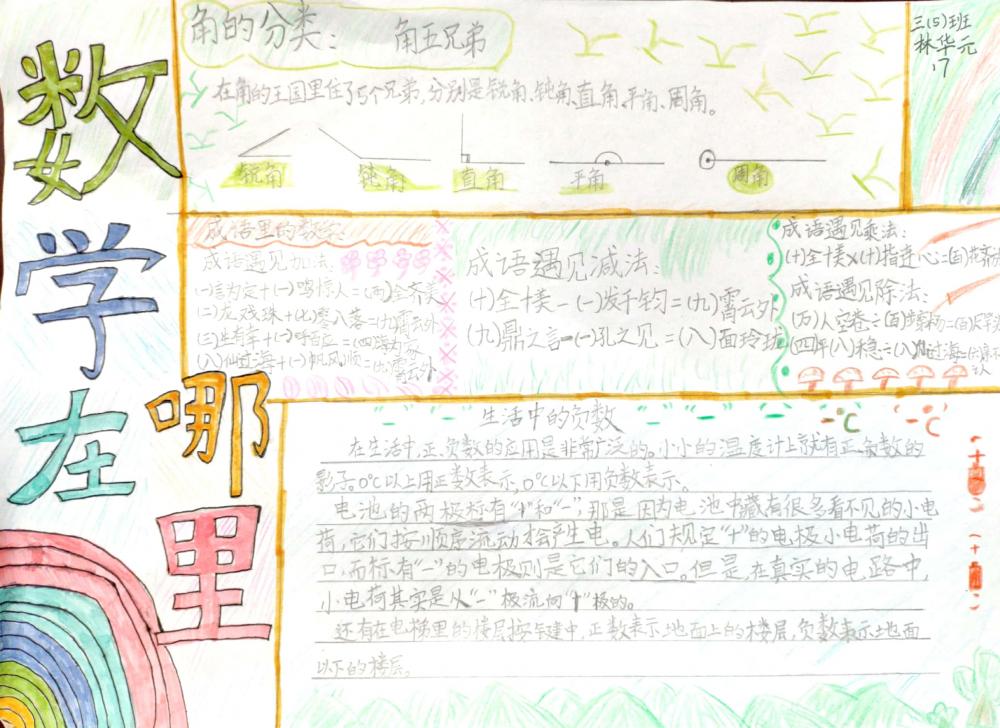 数学在哪里
三(5)班
林华元
17
角的分类： 角五兄弟
在角的王国里住了5个兄弟,分别是锐角、钝角、直角、平角、周角。
锐角 钝角 直角 平角 周角
成语里的数学:
成语遇见加法:
(一)言为定+(一)鸣惊人=(两)全齐美
(二)龙戏珠+(七)零八落=(九)霄云外
(三)生有幸+(一)呼百应=(四)海为家
(八)仙过海+(一)帆风顺=(九)霄云外
成语遇见减法:
(十)全十美-(一)发千钧=(九)霄云外
(九)鼎之言-(一)孔之见=(八)面玲珑
成语遇见乘法:
(十)全十美×(十)指连心=(百)花齐放
成语遇见除法:
(万)人空巷÷(百)步穿杨=(百)尺竿头
(四)平(八)稳÷(八)仙过海=
生活中的负数
-°C -°C
在生活中,正、负数的应用是非常广泛的。小小的温度计上就有正、负数的
影子。0°C以上用正数表示,0°C以下用负数表示。
电池的两极标有“+”和“-”,那是因为电池中藏有很多看不见的小电
荷,它们按顺序流动才会产生电。人们规定“+”的电极小电荷的出
口,而标有“-”的电极则是它们的入口。但是,在真实的电路中,
小电荷其实是从“-”极流向“+”极的。
还有在电梯里的楼层按钮建中,正数表示地面上的楼层,负数表示地面
以下的楼层。